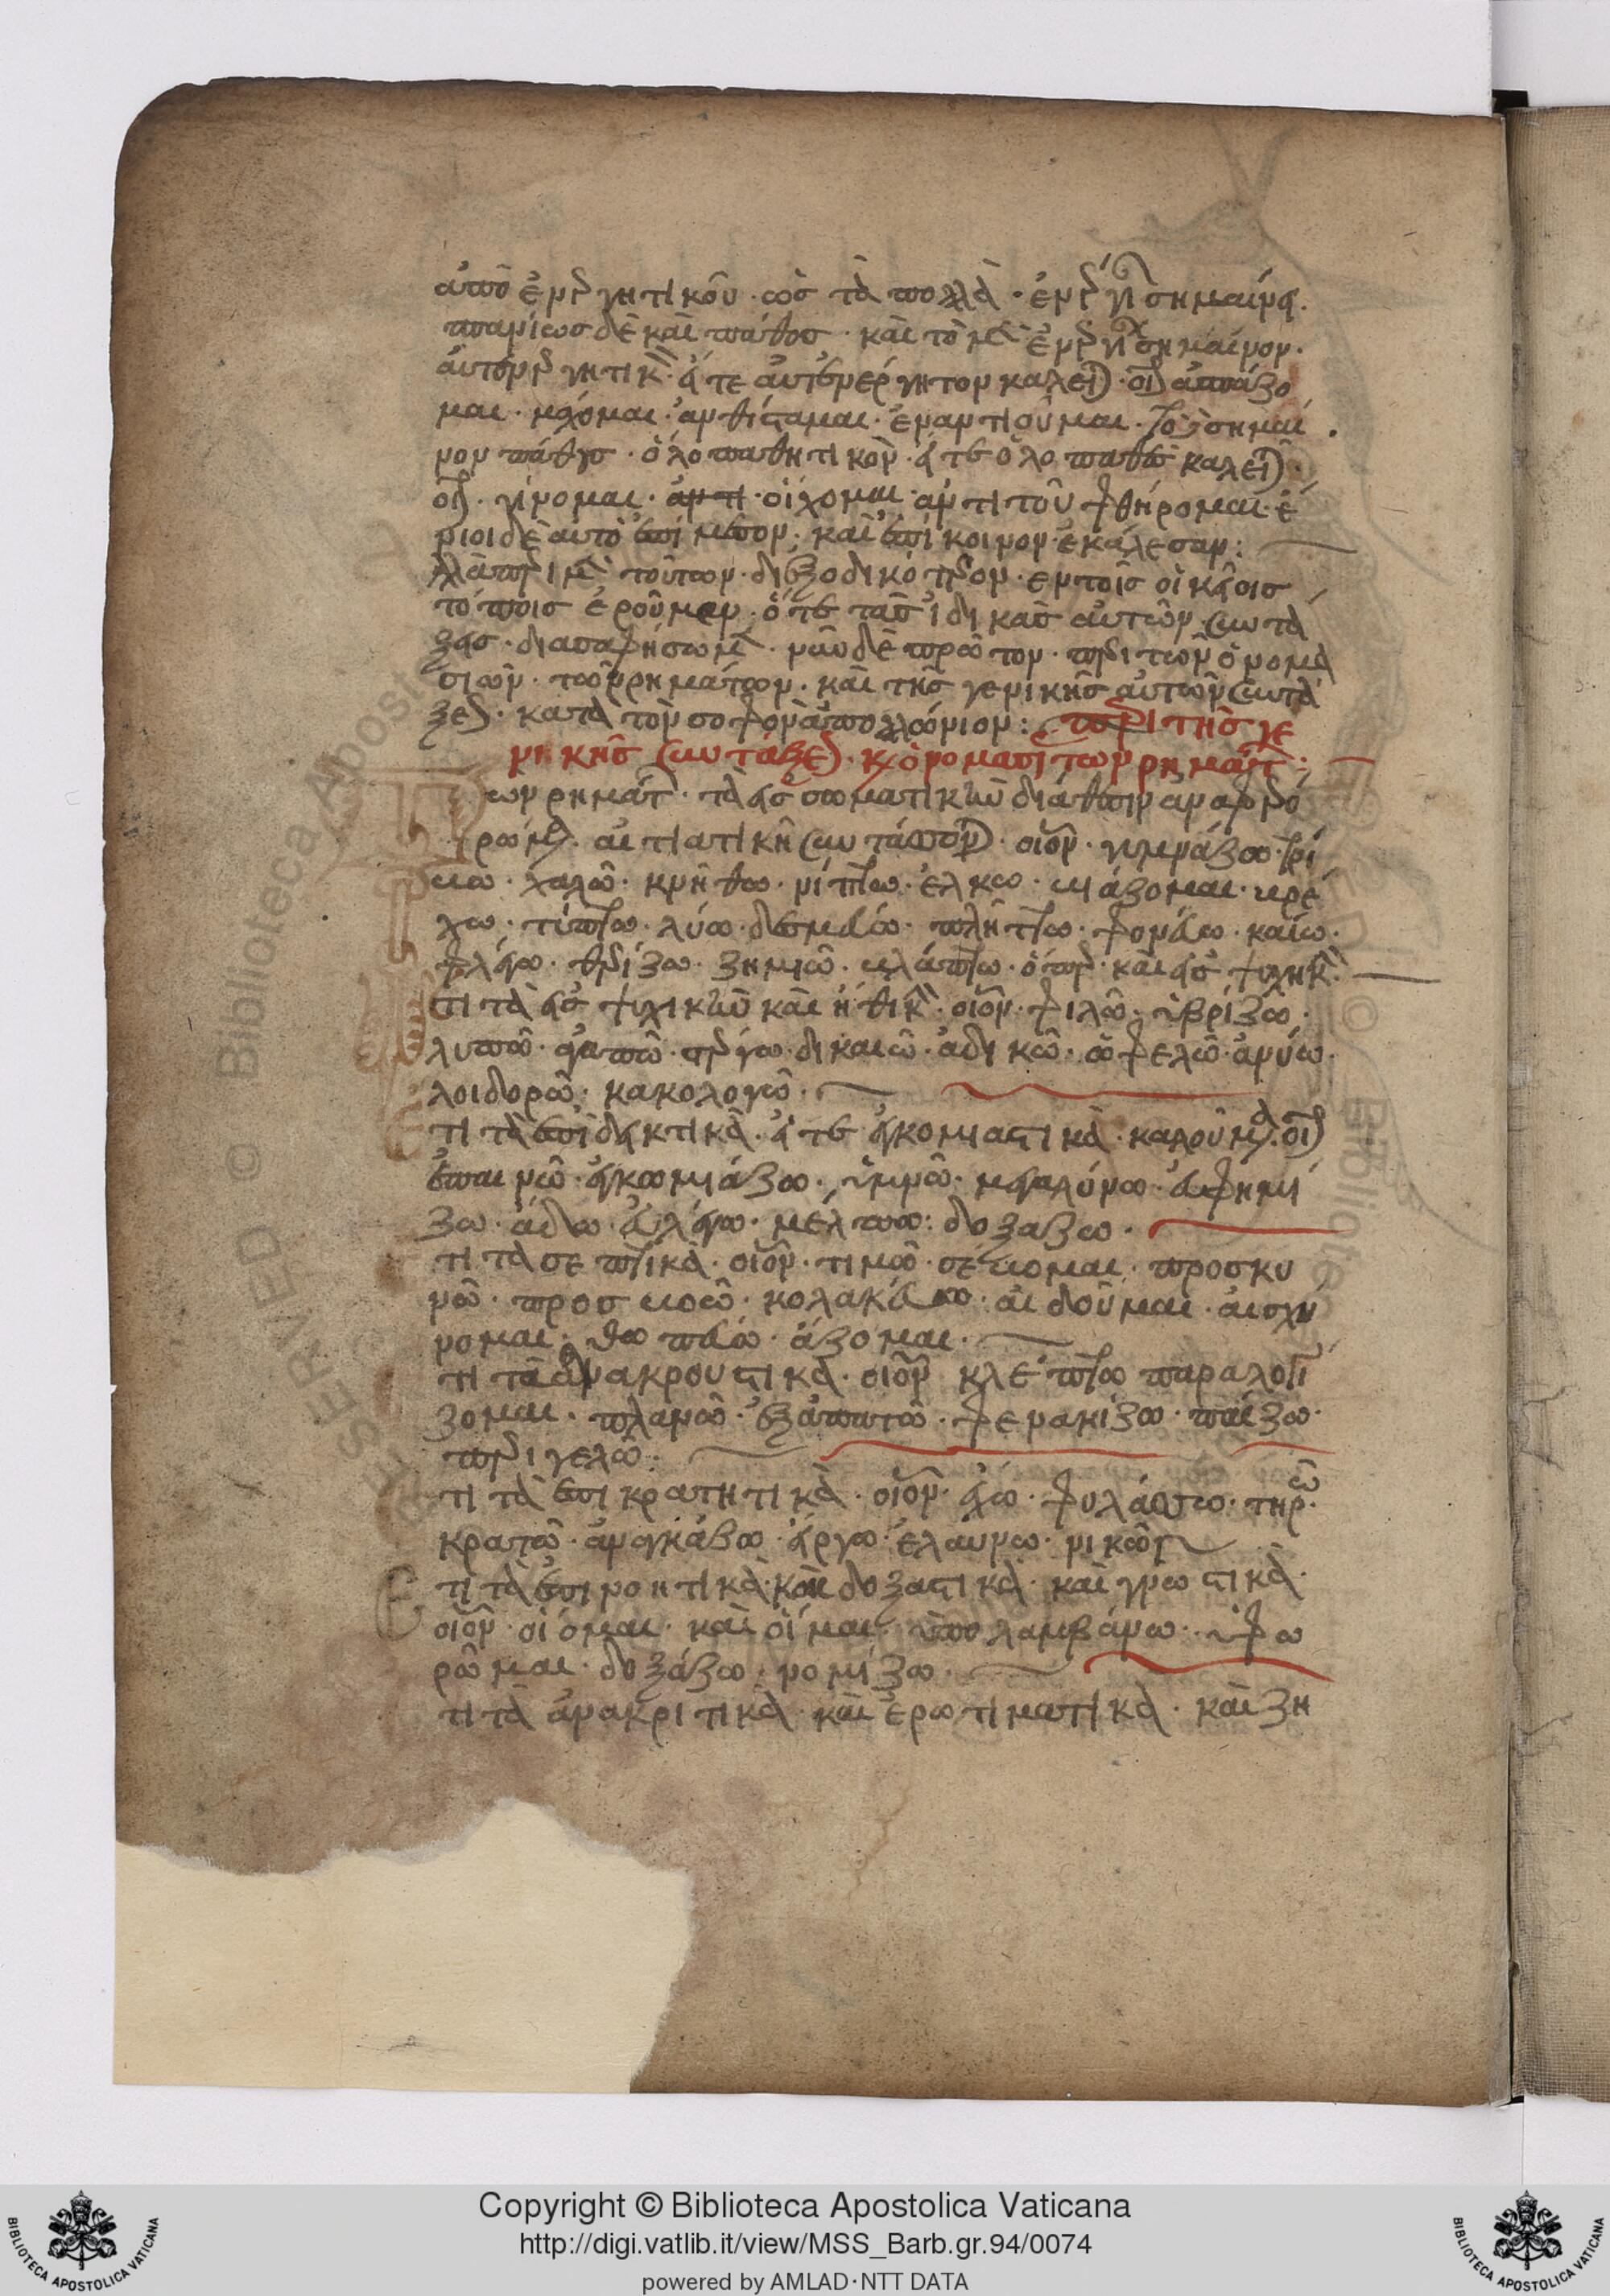 ἀπὸ ἐνεργητικοῦ· ὡς τὰ πολλὰ· ἐνέργειαν σημαίνει.
σπανίως δὲ καὶ πάθος· καὶ τὸ μὲν ἐνέργειαν σημαίνον·
καλεῖται· οἷον ἀσπάζο
μαι· μάχομαι· ἀνθίσταμαι· ἐναντιοῦμαι· τὸ δὲ σημαί
νον πάθος· ὁλοπαθητικὸν· εἴτε ὁλοπαθὲς καλεῖται·
οἷον· γίνομαι· ἀντι οἴχομαι· ἀντὶ τοῦ φθήρομαι· ἔ
νιοι δὲ αὐτὸ ἐπίμεσον· καὶ ἐπίκοινον ἐκάλεσαν:
ἀλλὰ περὶ μὲν τούτων· διεξοδικότερον· ἐν τοῖς οἰκείοις
τόποις ἐροῦμεν· ὅτε τὰς ἰδικὰς αὐτῶν συντά
ξεις· διασαφήσωμεν· νῦν δὲ πρῶτον· περὶ τῶν ὀνομα
σιῶν· τῶν ρημάτων· καὶ τῆς γενικῆς αὐτῶν συντά
ξεως· κατὰ τὸν σοφὸν ἀπολλώνιον: περὶ τῆς γε
νικῆς συντάξεως· καὶ ὀνομασι τῶν ρημάτων:
ων ρημάτων· τὰ εἰς σωματικὴν διάθεσιν ἀναφερό
αἰτιατικῇ συντάσσονται· οἷον· γυμνάζω· τρί
βω· χαλῶ· κνήθω· νίπτω· ἕλκω· βιάζομαι· βρέ
χω· τύπτω· λύω· δεσμεύω· πλήττω· φονεύω· καίω·
φλέγω· θερίζω· ζημιῶ· βλάπτω· ὅπερ καὶ εἰς ψυχικὴν
τι τὰ εἰς ψυχικὴν καὶ ἠθικὴν· οἷον· φιλῶ· ὑβρίζω·
λυπῶ· ἀγαπῶ· στέργω· δικαιῶ· ἀδικῶ· ὠφελῶ· ἀμύω·
λοιδορῶ· κακολογῶ·
τι τὰ ἐπιδεικτικὰ· εἴτε ἐγκομιαστικὰ καλούμενα· οἷον
ἐπαινῶ· ἐγκωμιάζω· ὑμνῶ· μεγαλύνω· εὐφημί
ζω· ἄδω· εὐλέγω· μέλπω: δοξάζω·
τι τὰ σεπτικὰ· οἷον· τιμῶ· σέβομαι· προσκυ
νῶ· προσβοῶ· κολακεύω· αἰδοῦμαι· αἰσχύ
νομαι· θωπεύω· ἅζομαι·
τι τὰ διακρουστικὰ· οἷον κλέπτω παραλογί
ζομαι· πλανῶ· ἐξαπατῶ· φενακίζω· παίζω·
περιγελῶ·
τι τὰ ἐπικρατητικὰ· οἷον· ἔχω· φυλάσσω· τηρῶ·
κρατῶ· ἀναγκάζω· εἴργω· ἐλαύνω· νικῶ
τι τὰ ἐπινοητικὰ· καὶ δοξαστικὰ· καὶ γνωστικὰ·
οἷον· οἴομαι· καὶ οἶμαι· ὑπολαμβάνω· ὑφω
ρῶμαι· δοξάζω· νομίζω·
τι τὰ ἀνακριτικὰ· καὶ ἐρωτιματικὰ· καὶ ζη
Copyright © Biblioteca Apostolica Vaticana
http://digi.vatlib.it/view/MSS_Barb.gr.94/0074
powered by AMLAD·NTT DATA
BIBLIOTECA APOSTOLICA VATICANA
BIBLIOTECA APOSTOLICA VATICANA